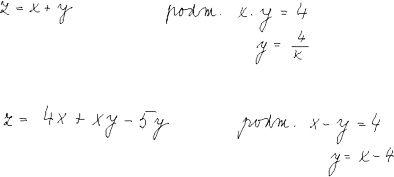 z = x + y podm. x. y = 4
y = 4/x
z = 4x + xy - 5y podm. x - y = 4
y = x - 4